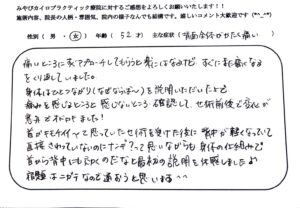 みやびカイロプラクティック療院に対するご感想をよろしくお願いいたします!!
施術内容、院長の人柄・雰囲気、院内の様子なんでも結構です。嬉しいコメント大歓迎です(*^_^*)
性別( 男・女 ) 年齢( 52 才) 主な症状( 背面全体がかたく痛い
痛いところに来てアプローチしてもらうと楽にはなるけど すぐにまた痛くなる
をくり返していました。
身体はひとつながり(なぜならば〜)を説明いただいた上で
痛みを感じるところと感じないところ 確認して、せ術前後で変化が
意みてとれました!
首がモヤイヤって思っていたらせ術を受けた後に背中が軽くなっていて
直接さわっていないのにナンデ?って思いながらも身体の仕組みで
首から背中にもつながるのだなと最初の説明を体感しましたよ
宿題はニガテなので通おうと思います^^